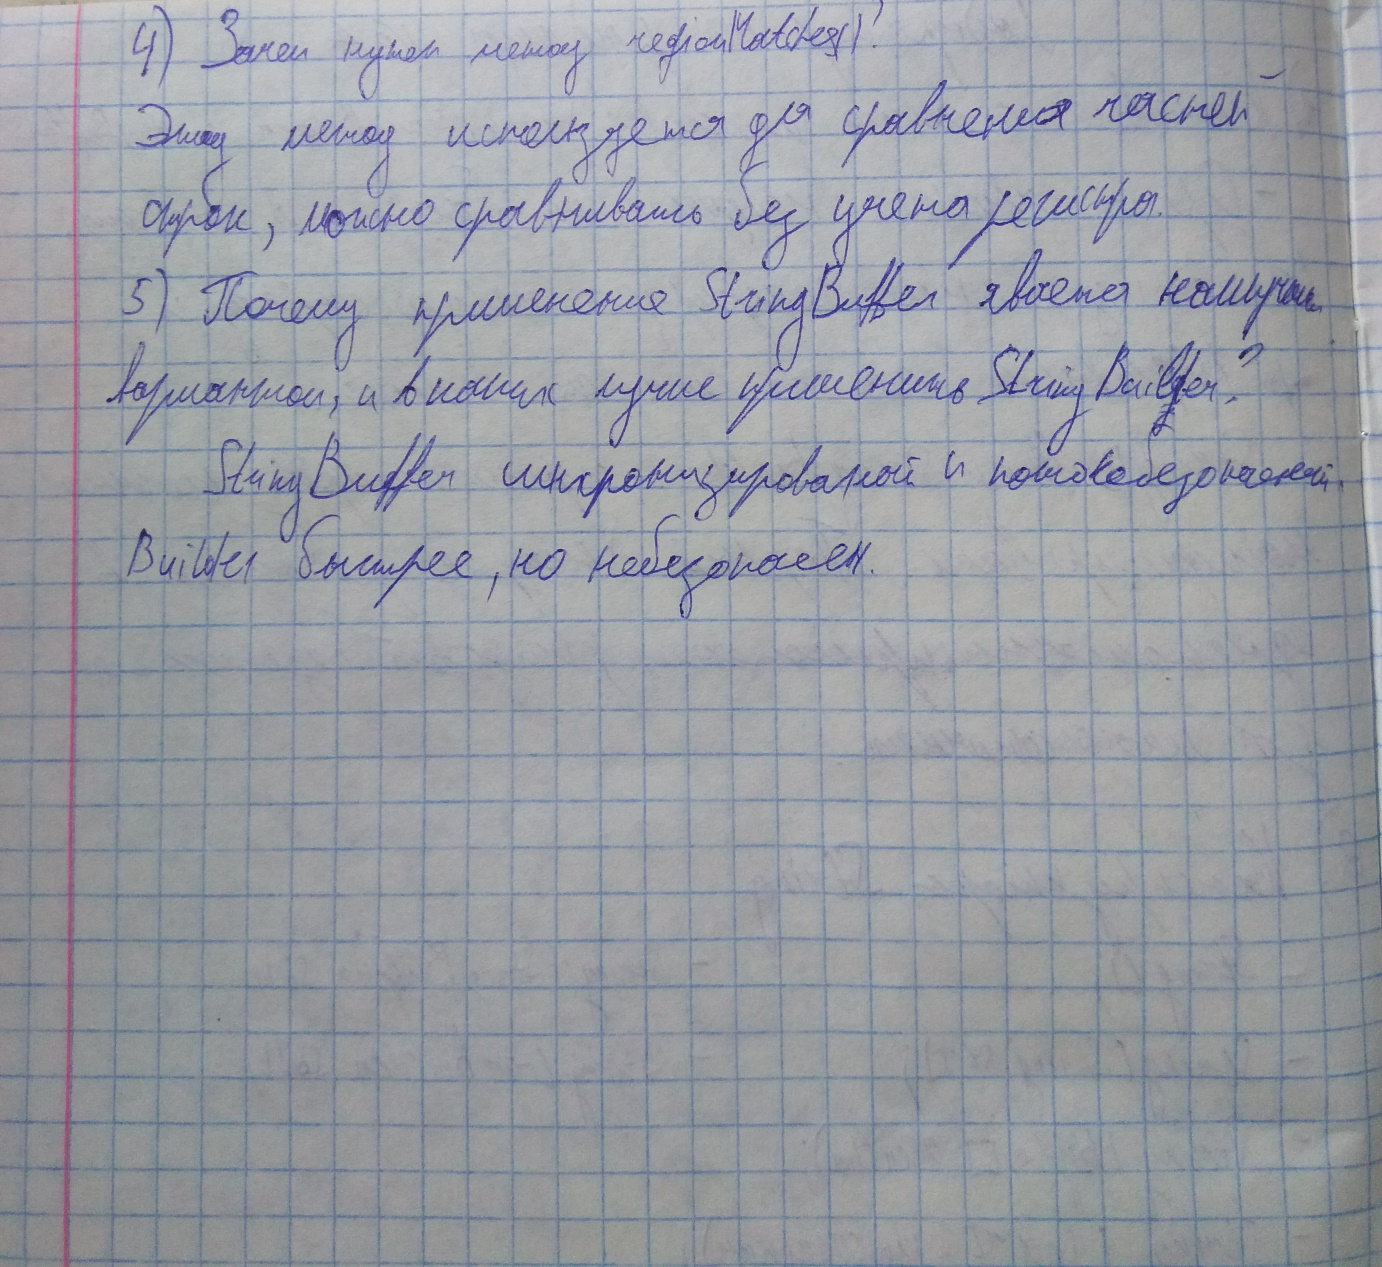 4) Зачем нужен метод regionMatches()?
Этот метод используется для сравнения частей
строк, можно сравнивать без учета регистра.
5) Почему применение StringBuffer является наилучшим
вариантом, и в каких лучше применить StringBuilder?
StringBuffer синхронизированой и потокобезопасный.
Builder быстрее, но небезопасен.